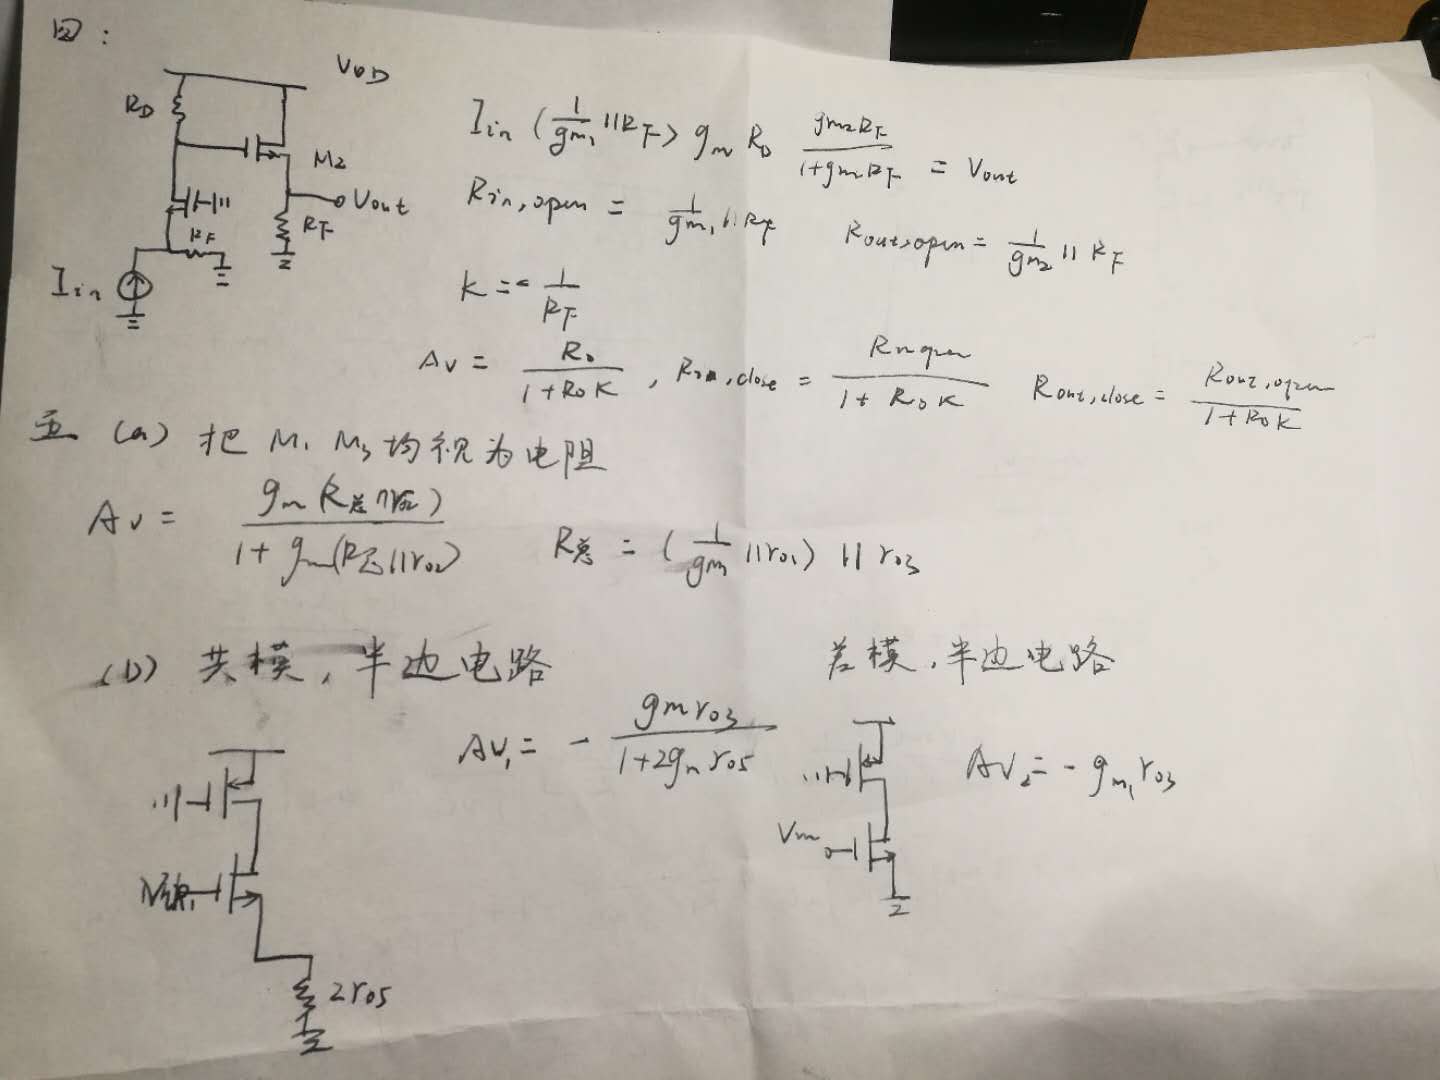 四:
VDD
RD
M2
Vout
RF
RF
Iin
Iin (1/gm1 || RF) gm RD gm2RF/(1+gm2RF) = Vout
Rin,open = 1/gm1 || RF Rout,open = 1/gm2 || RF
K = - 1/RF
Av = R0/(1+R0K) , Rin,close = Rin,open/(1+R0K) Rout,close = Rout,open/(1+R0K)
五 (a) 把 M1 M3 均视为电阻
Av = gm(R总||ro2)/(1+gm(R总||ro2)) R总 = (1/gm || ro1) || ro3
(b) 共模,半边电路 差模,半边电路
Av1 = - gmro3/(1+2gmro5) Av2 = - gm1ro3
2ro5